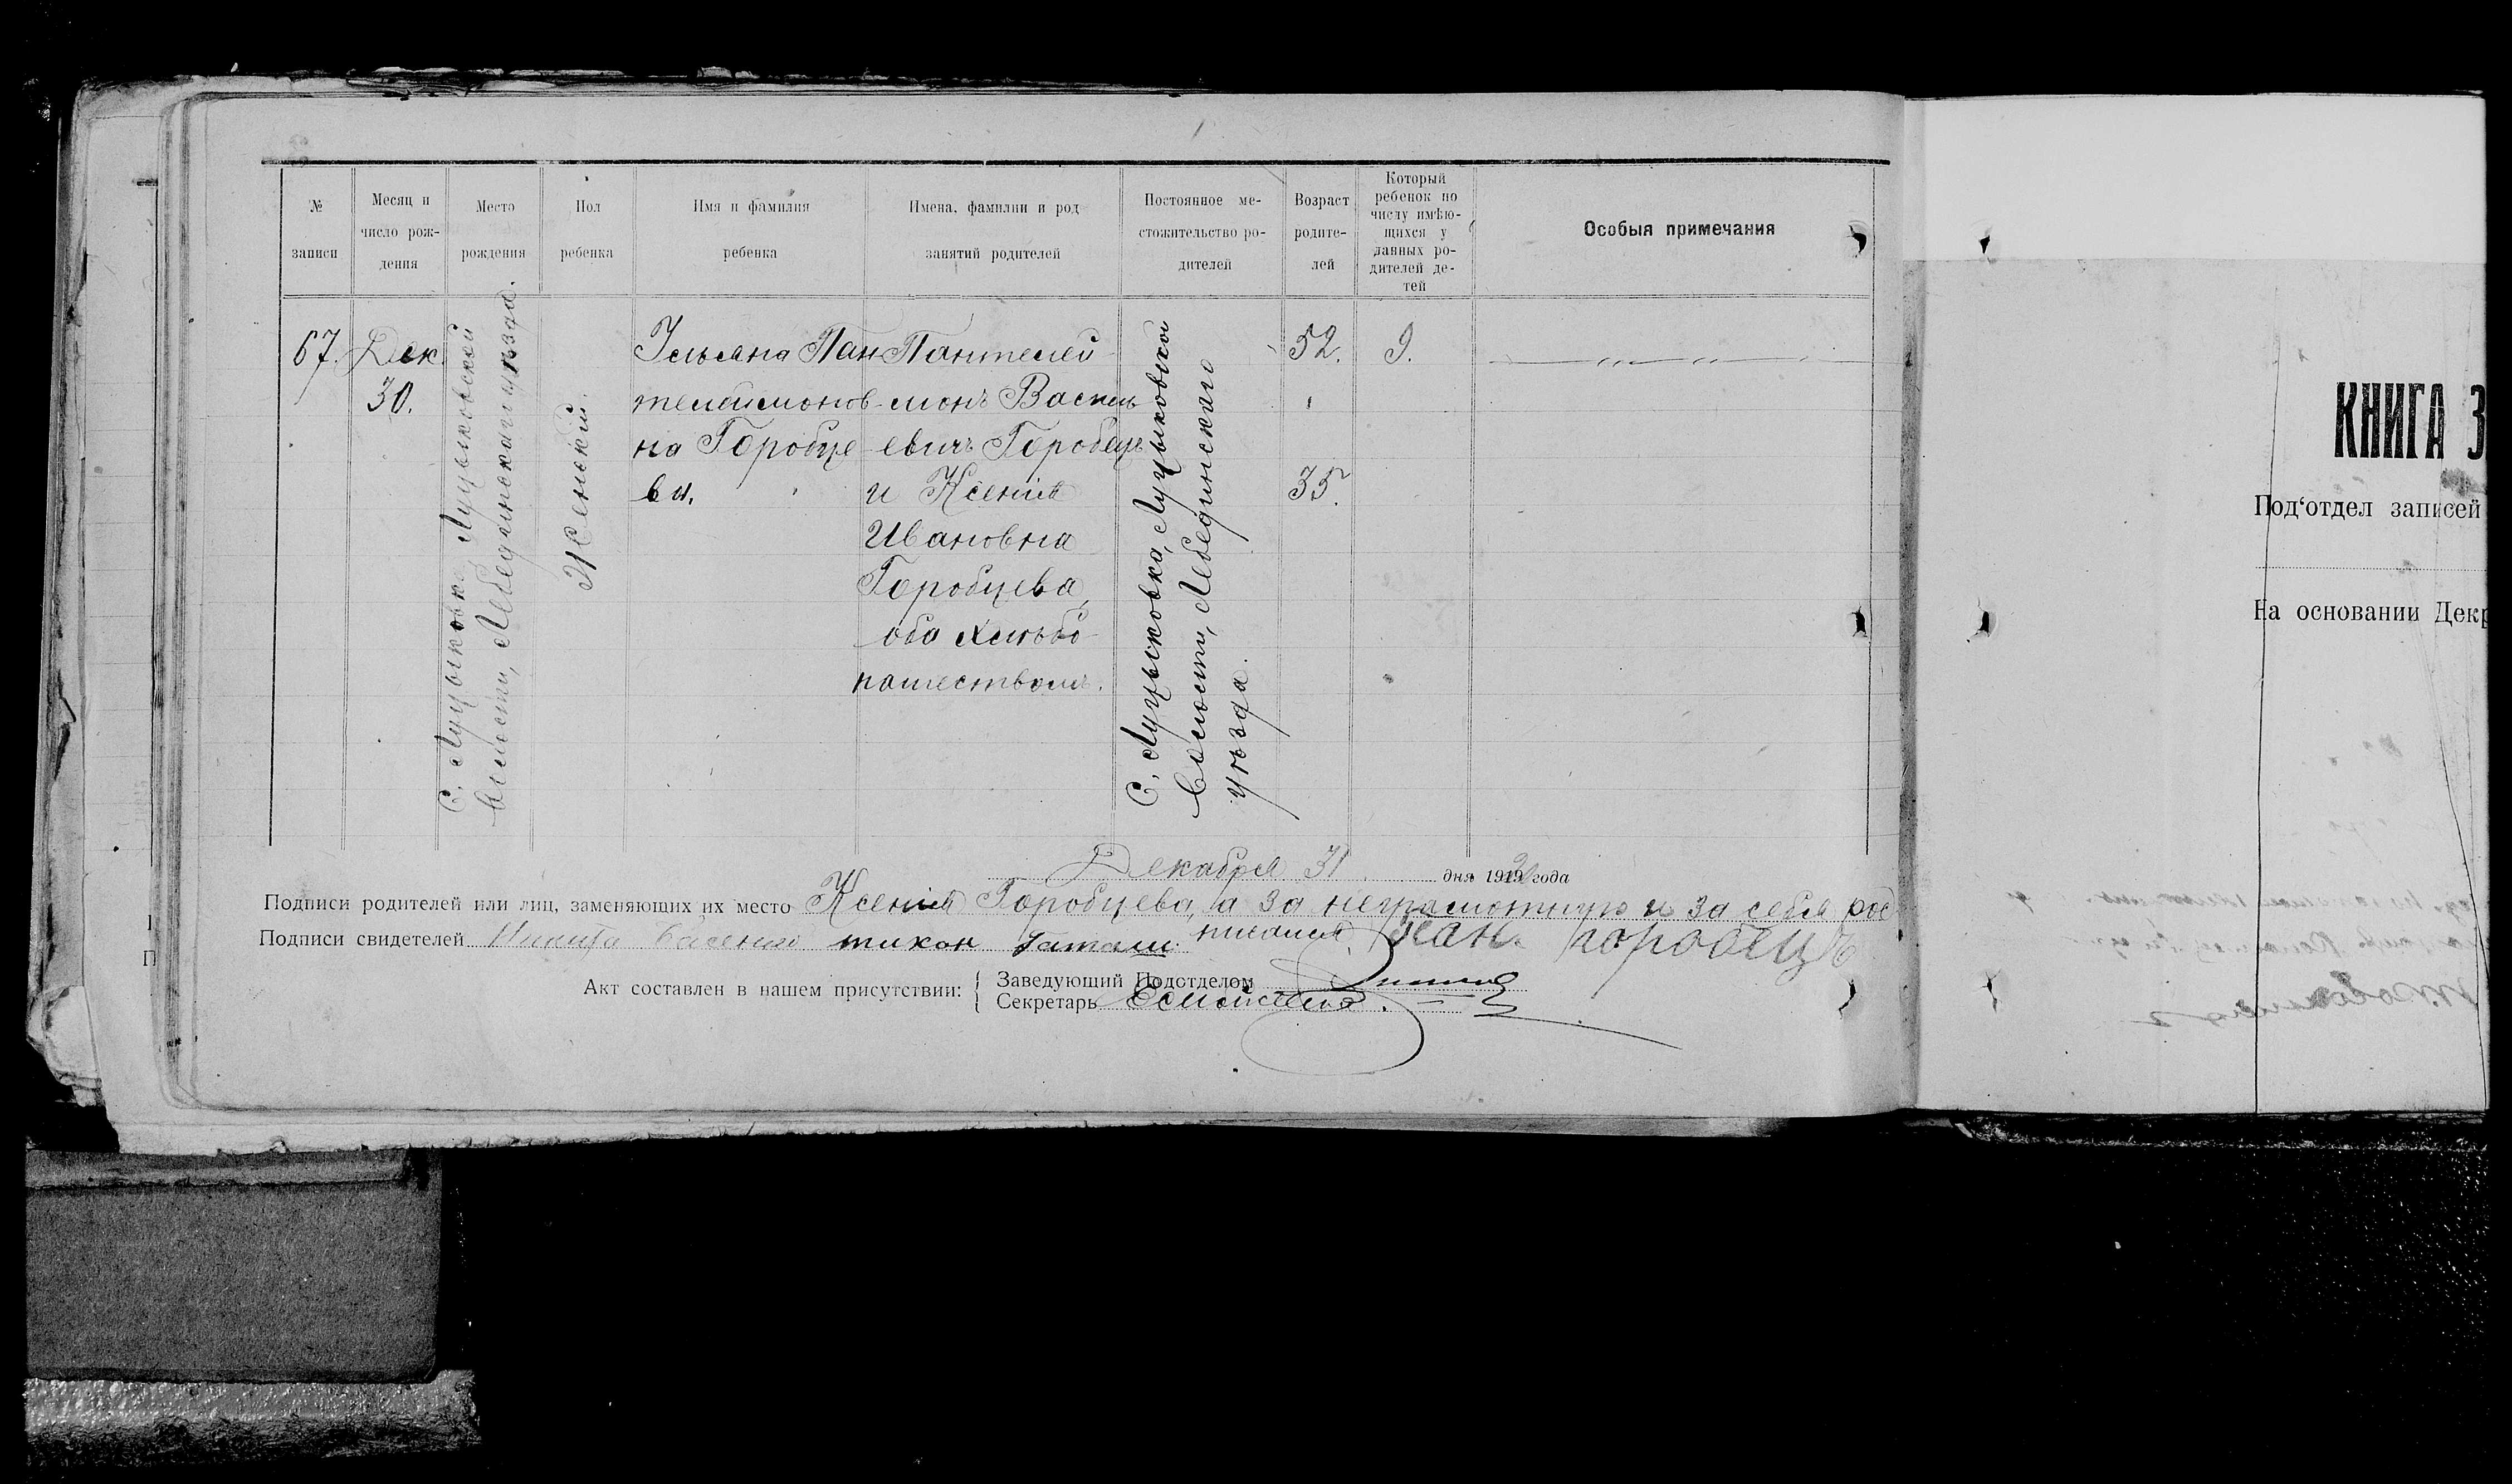 № записи
Месяц и число рождения
Место рождения
Пол ребенка
Имя и фамилия ребенка
Имена, фамилии и род занятий родителей
Постоянное местожительство родителей
Возраст родителей
Который ребенок по числу имѣющихся у данных родителей детей
Особыя примечания
67.
Дек.
30.
С. Луцыковка Луцыковской
волости, Лебединскаго уѣзда.
Женский.
Ульяна Пан
телеймонов
на Горобце
ва.
Пантелей
монъ Василь
евичъ Горобецъ
и Ксенія
Ивановна
Горобцева,
оба хлѣбо
пашеством.
С. Луцыковка, Луцыковской
волости, Лебединского
уѣзда.
52.
35.
9.
Декабря 31 дня 19 года
Подписи родителей или лиц, заменяющих их место Ксенія Горобцева, а за неграмотную и за себя рос
писался Пан. горобецъ
Подписи свидетелей Никита тихон
Акт составлен в нашем присутствии:
Заведующий Подотделом
Секретарь
КНИГА З
Под‘отдел записей
На основании Декр